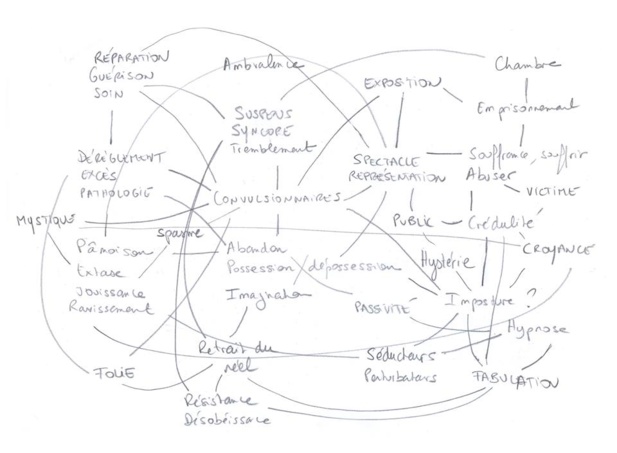 RÉPARATION
GUÉRISON
SOIN
Ambivalence
EXPOSITION
Chambre
Emprisonnement
SUSPENS
SYNCOPE
Tremblement
DÉRÈGLEMENT
EXCÈS
PATHOLOGIE
SPECTACLE
REPRÉSENTATION
Souffrance, souffrir
Abuser
VICTIME
CONVULSIONNAIRES
MYSTIQUE
PUBLIC
Crédulité
spasme
CROYANCE
Pâmoison
Extase
Jouissance
Ravissement
Abandon
Possession / dépossession
Imagination
Hystérie
PASSIVITÉ
Imposture ?
Hypnose
Retrait du
réel
Séducteurs
Perturbateurs
FOLIE
FABULATION
Résistance
Désobéissance